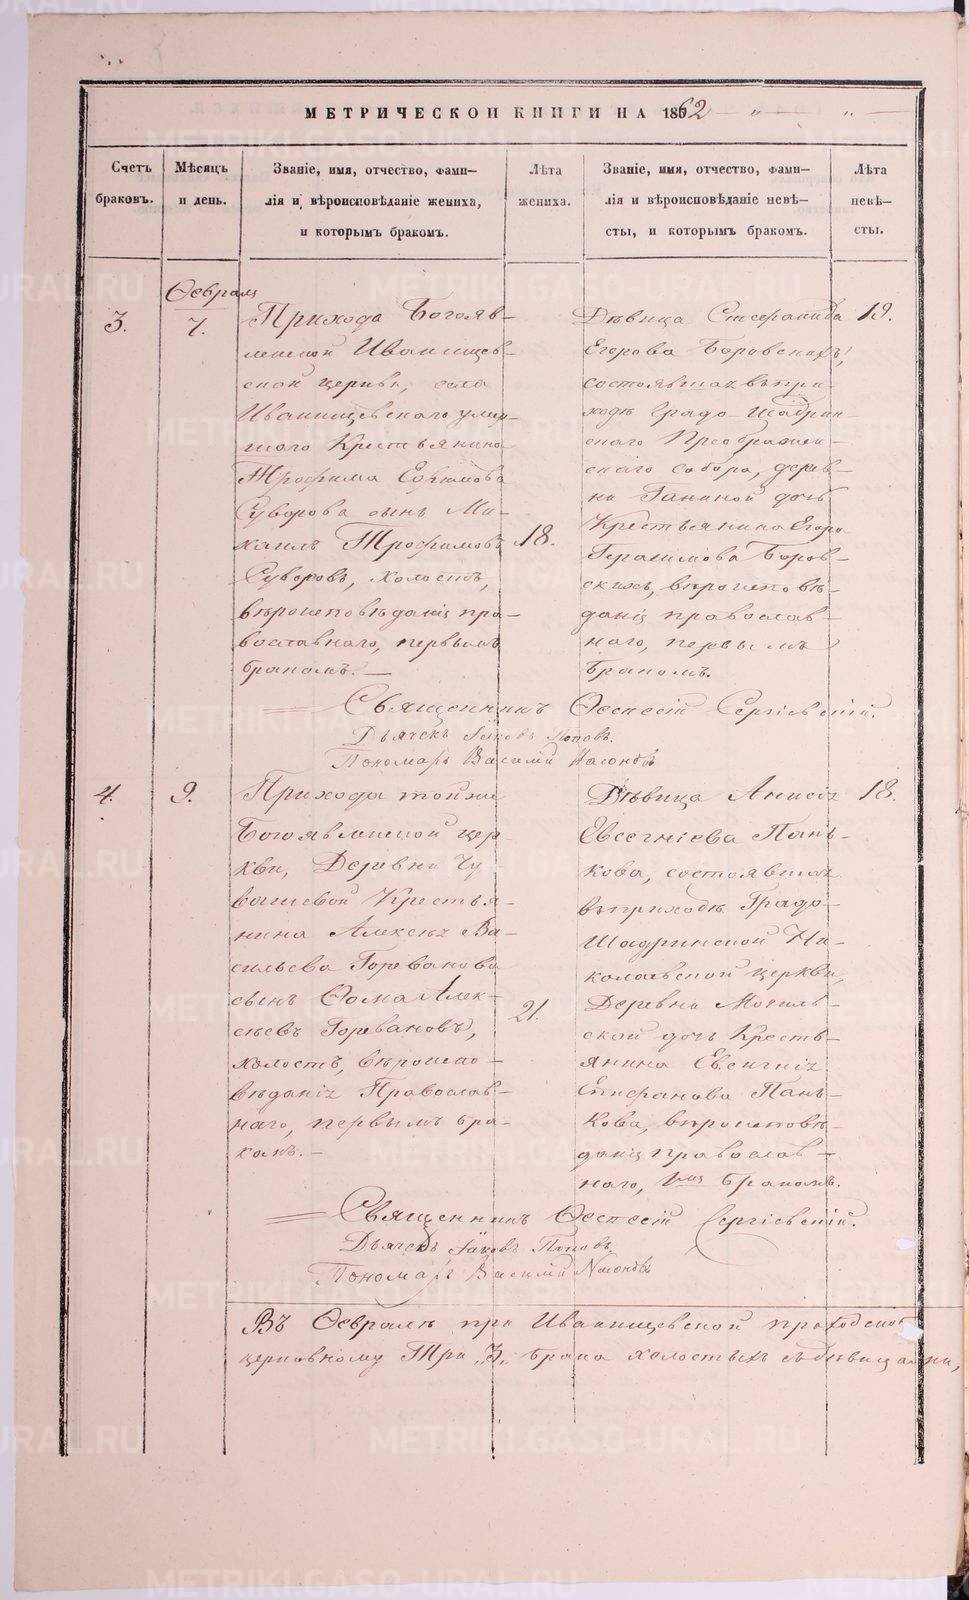 МЕТРИЧЕСКОЙ КНИГИ НА 1862
Счетъ браковъ.
Мѣсяцъ и день.
Званіе, имя, отчество, фами-
лія и вѣроисповѣданіе жениха,
и которымъ бракомъ.
Лѣта жениха.
Званіе, имя, отчество, фами-
лія и вѣроисповѣданіе невѣ-
сты, и которымъ бракомъ.
Лѣта невѣ-
сты.
Ѳевраля
3.
7.
Прихода Богояв-
ленской Иванищев-
ской церкви, села
Иванищевскаго умер-
шаго Крестьянина
Трофима Ефимова
Суворова сынъ Ми-
хаилъ Трофимовъ
Суворовъ, холостъ,
вѣроисповѣданія пра-
вославнаго, первымъ
бракомъ. —
18.
Дѣвица Стефанида
Егорова Боровскихъ,
состоявшая въ при-
ходѣ Градо-Шадрин-
скаго Преображен-
скаго собора, дерев-
ни Ганиной дочь
Крестьянина Егора
Герасимова Боров-
скихъ, вѣроисповѣ-
данія православ-
наго, первымъ
бракомъ.
19.
Священникъ Ѳеспесій Сергіевскій.
Дьячекъ Іаковъ Поповъ.
Пономарь Василій Насоновъ
4.
9.
Прихода тойже
Богоявленской цер-
кви, Деревни Чу-
вашевой Крестья-
нина Алексѣя Ва-
сильева Горванова
сынъ Ѳома Алек-
сѣевъ Горвановъ,
холостъ, вѣроиспо-
вѣданія Православ-
наго, первымъ бра-
комъ. —
21.
Дѣвица Анисія
Евсегніева Пань-
кова, состоявшая
въ приходѣ Градо-
Шадринской Ни-
колаевской церкви,
Деревни Могиль-
ской дочь Кресть-
янина Евсегнія
Епифанова Пань-
кова, вѣроисповѣ-
данія православ-
наго, 1мъ бракомъ.
18.
Священникъ Ѳеспесій Сергіевскій.
Дьячекъ Іаковъ Поповъ.
Пономарь Василій Насоновъ
Въ Ѳевралѣ при Иванищевской приходской
церкви по сему Три „3„ брака холостыхъ съ дѣвицами,
METRIKI.GASO-URAL.RU